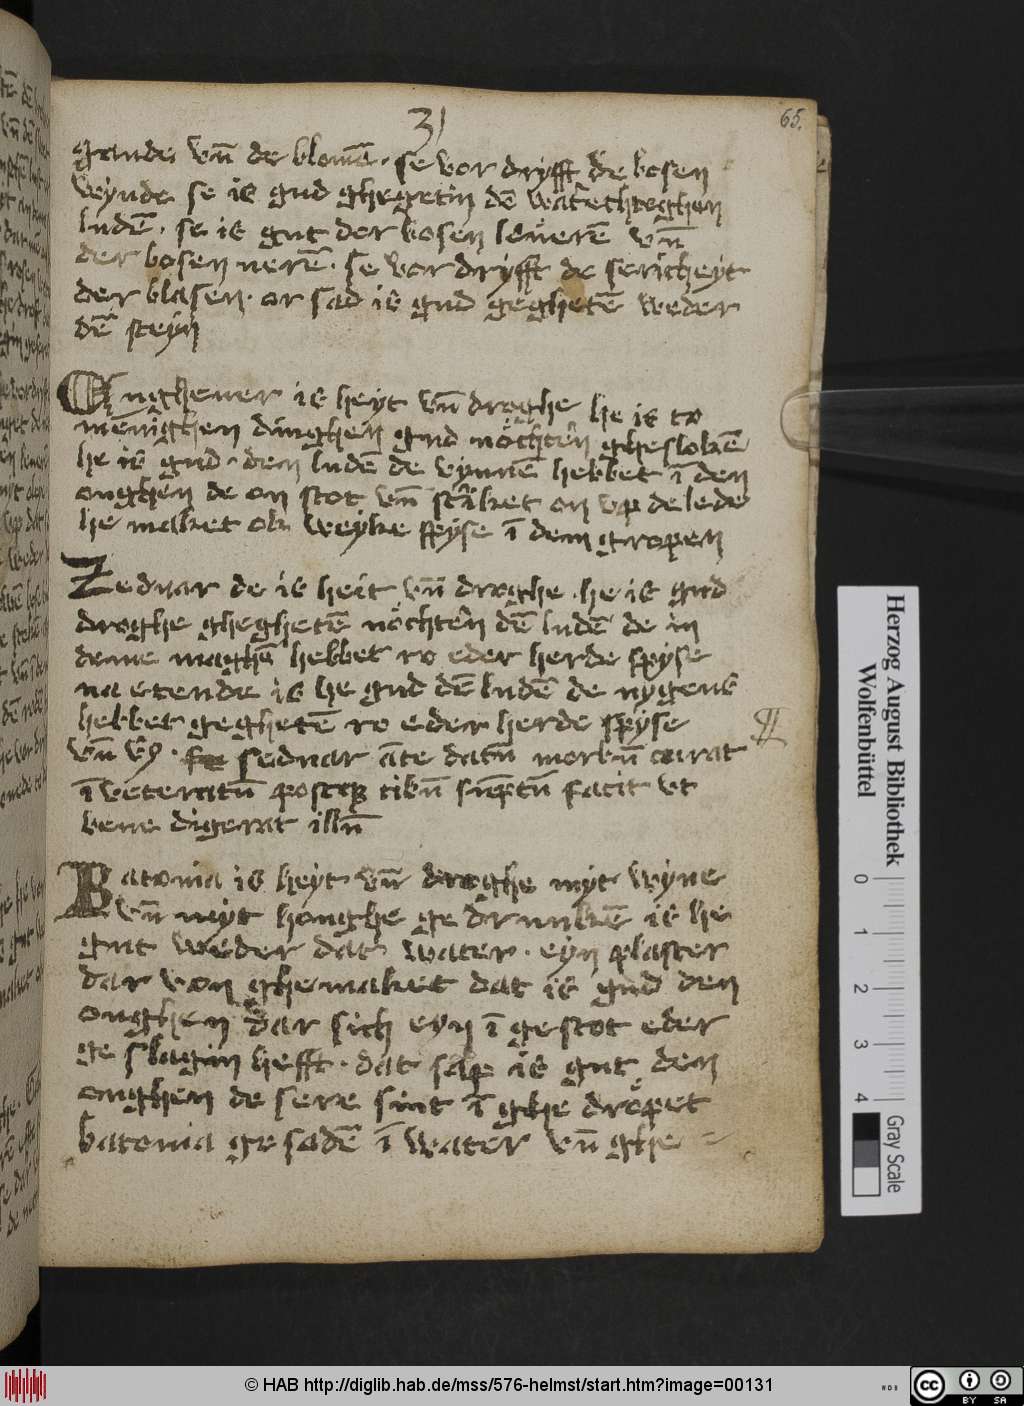 31
65.
grande vn̄ de blomē · se vor dryfft de bosen
wynde se is gud ghegetin dē watechteghen
ludē · se is gut der bosen leuerē vn̄
der bosen nerē · se vor dryfft de sericheyt
der blasen · or sad is gud gegheten̄ weder
dē steyn
Engheuer is heyt vn̄ droghe he is to
menighen dinghen gud nochterñ ghesloken̄
he is gud · den ludē de vynnē hebbet ī den
oughen de on stot vn̄ starket on vp de lede
he maket ok weyke spyse ī dem gropen
Zeduar de is heit vn̄ droghe · he is gud
droghe ghegheten̄ nochterñ dē ludē de in
deme maghē hebbet ro eder herde spyse
na etende is he gud dē ludē de nygens
hebbet gegheten̄ ro eder herde spyse
vn̄ v9 · seduar āte datū morbū curat
īveteratū postq3 cibū sūptū facit vt
bene digerat illū
Batonia is heyt vn̄ droghe myt wyne
vn̄ myt honghe ge drunkē is he
gut weder dat water · eyn plaster
dar von ghemaket dat is gud den
oughen dar sich eyn ī gestot eder
ge slagin hefft · dat sap is gut den
oughen de sere sint ī ghe dropet
batonia ge sadē ī water vn̄ ghe =
Herzog August Bibliothek
Wolfenbüttel
0 1 2 3 4
Gray Scale
© HAB http://diglib.hab.de/mss/576-helmst/start.htm?image=00131
WDB
cc BY SA